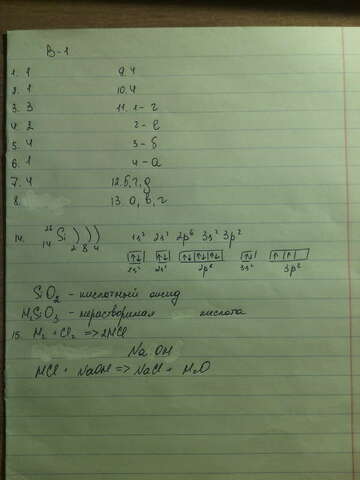 В-1
1. 1 9. 4
2. 1 10. 4
3. 3 11. 1 - г
4. 2 2 - в
5. 4 3 - б
6. 1 4 - а
7. 4 12. б, г, д
8. 13. а, в, г
14. 28 14 Si ) ) ) 2 8 4 1s² 2s² 2p⁶ 3s² 3p²
↑↓ ↑↓ ↑↓ ↑↓ ↑↓ ↑↓ ↑ ↑
2s² 2p⁶ 3s² 3p²
SiO₂ - кислотный оксид
H₂SiO₃ - нерастворимая кислота
15. H₂ + Cl₂ => 2HCl
Na OH
HCl + NaOH => NaCl + H₂O